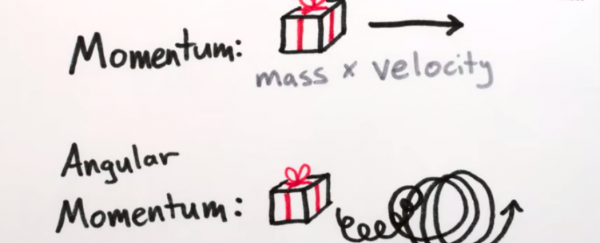 Momentum:
mass x velocity
Angular
Momentum: